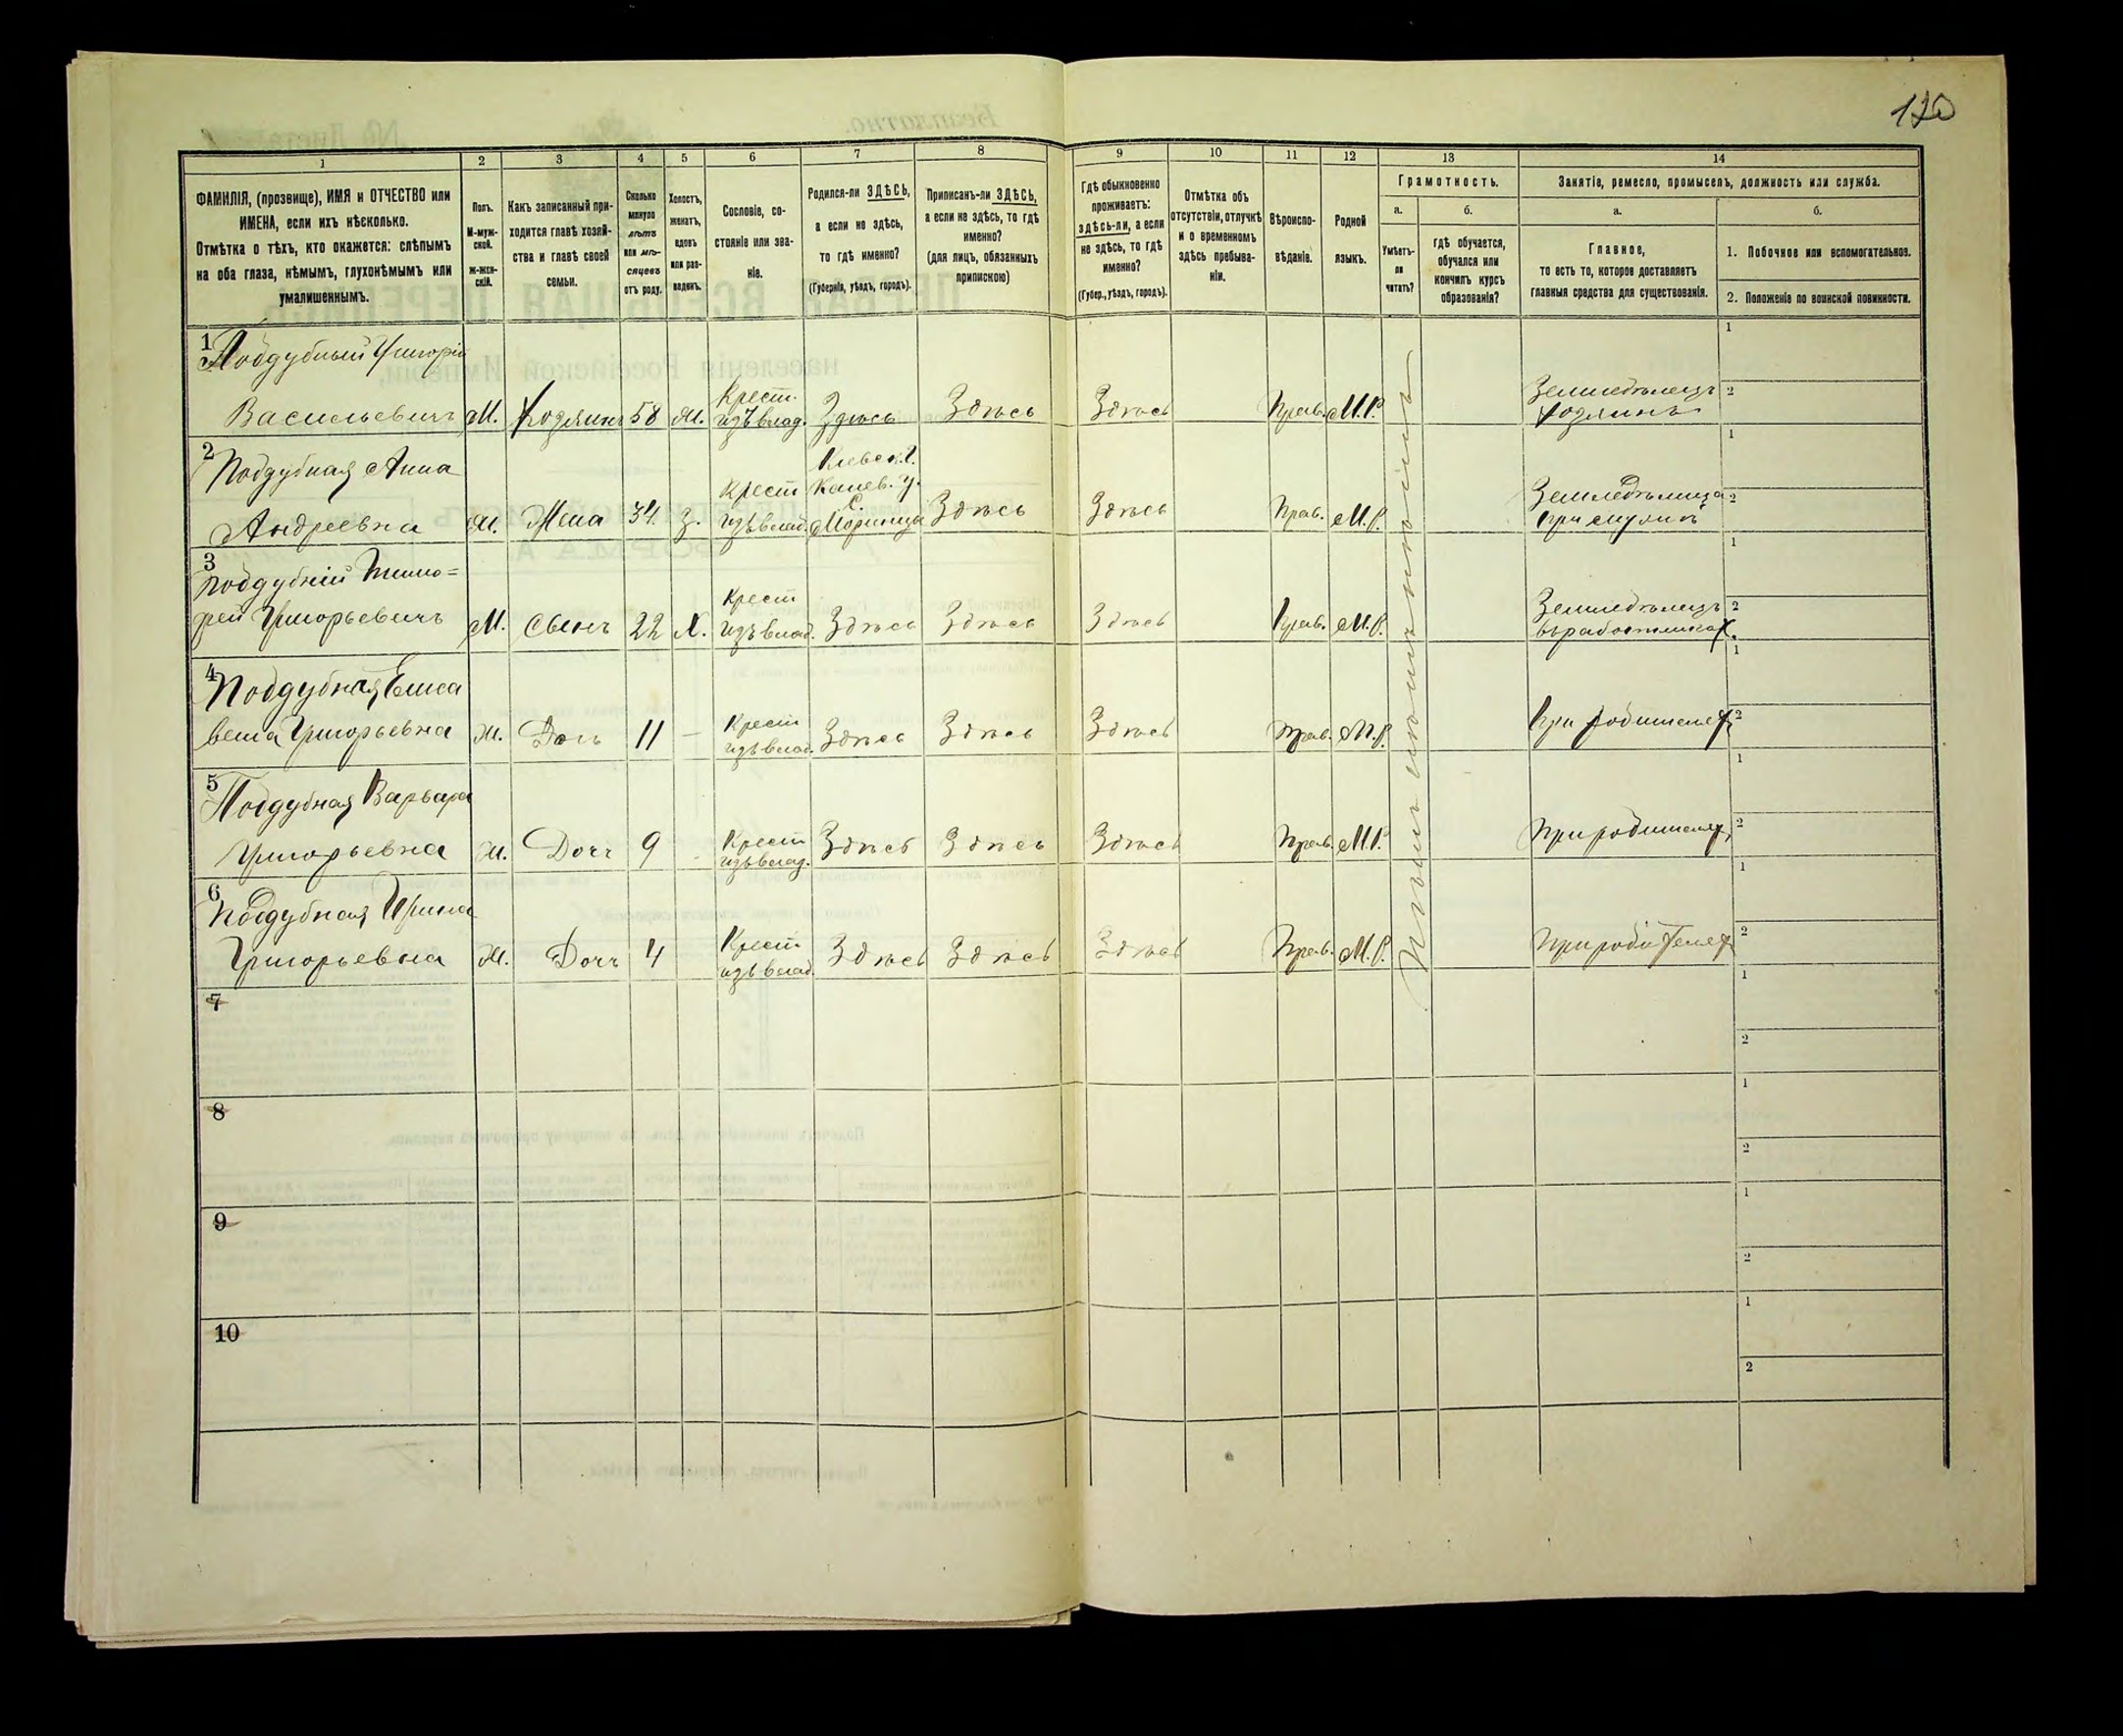 120
1 2 3 4 5 6 7 8 9 10 11 12 13 14
ФАМИЛІЯ, (прозвище), ИМЯ и ОТЧЕСТВО или
ИМЕНА, если ихъ нѣсколько.
Отмѣтка о тѣхъ, кто окажется: слѣпымъ
на оба глаза, нѣмымъ, глухонѣмымъ или
умалишеннымъ.
Полъ.
М-муж-
ской.
ж-жен-
скій.
Какъ записанный при-
ходится главѣ хозяй-
ства и главѣ своей
семьи.
Сколько
минуло
лѣтъ
или мѣ-
сяцевъ
отъ роду.
Холостъ,
женатъ,
вдовъ
или раз-
веденъ.
Сословіе, со-
стояніе или зва-
ніе.
Родился-ли ЗДѢСЬ,
а если не здѣсь,
то гдѣ именно?
(Губернія, уѣздъ, городъ).
Приписанъ-ли ЗДѢСЬ,
а если не здѣсь, то гдѣ
именно?
(для лицъ, обязанныхъ
припискою)
Гдѣ обыкновенно
проживаетъ:
здѣсь-ли, а если
не здѣсь, то гдѣ
именно?
(Губер., уѣздъ, городъ).
Отмѣтка объ
отсутствіи, отлучкѣ
и о временномъ
здѣсь пребыва-
ніи.
Вѣроиспо-
вѣданіе.
Родной
языкъ.
Грамотность.
а.
Умѣетъ-
ли
читать?
б.
гдѣ обучается,
обучался или
кончилъ курсъ
образованія?
Занятіе, ремесло, промыселъ, должность или служба.
а.
Главное,
то есть то, которое доставляетъ
главныя средства для существованія.
б.
1. Побочное или вспомогательное.
2. Положеніе по воинской повинности.
1
Поддубный Григорій
Васильевичъ М. Хозяинъ 58 Ж. Крест. изъ влад. Здѣсь Здѣсь Здѣсь Прав. М.Р. Земледѣлецъ
хозяинъ
1
2
2
Поддубная Анна
Андреевна Ж. Жена 34 З. Крест изъ влад. Киевск. г.
Канев. у.
с.
Моринцы Здѣсь Здѣсь Прав. М.Р. Земледѣлица
при мужѣ
1
2
3
Поддубній Тимо=
фей Григорьевичъ М. Сынъ 22 Х. Крест изъ влад. Здѣсь Здѣсь Здѣсь Прав. М.Р. Земледѣлецъ
въ работниках.
1
2
4
Поддубная Елиса
вета Григорьевна Ж. Дочь 11 – Крест изъ влад. Здѣсь Здѣсь Здѣсь Прав. М.Р. При родителях
1
2
5
Поддубная Варвара
Григорьевна Ж. Дочь 9 Крест изъ влад. Здѣсь Здѣсь Здѣсь Прав. М.Р. При родителях
1
2
6
Поддубная Ирина
Григорьевна Ж. Дочь 4 Крест изъ влад. Здѣсь Здѣсь Здѣсь Прав. М.Р. При родителях
1
2
7
1
2
8
1
2
9
1
2
10
1
2